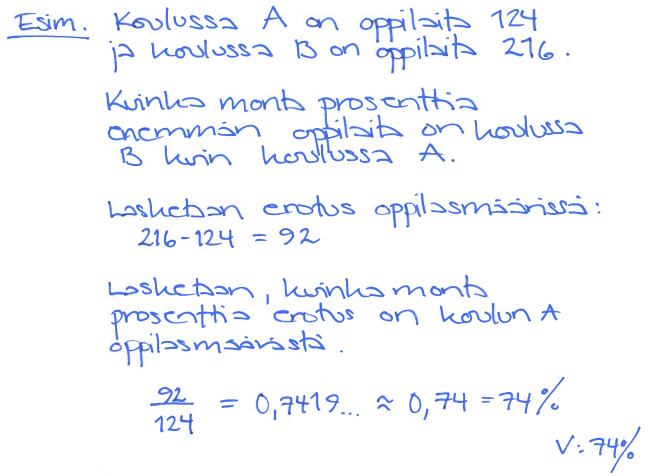 Esim. Koulussa A on oppilaita 124
ja koulussa B on oppilaita 216.
Kuinka monta prosenttia
enemmän oppilaita on koulussa
B kuin koulussa A.
Lasketaan erotus oppilasmäärissä:
216-124 = 92
Lasketaan, kuinka monta
prosenttia erotus on koulun A
oppilasmäärästä.
92/124 = 0,7419... ≈ 0,74 = 74%
V: 74%